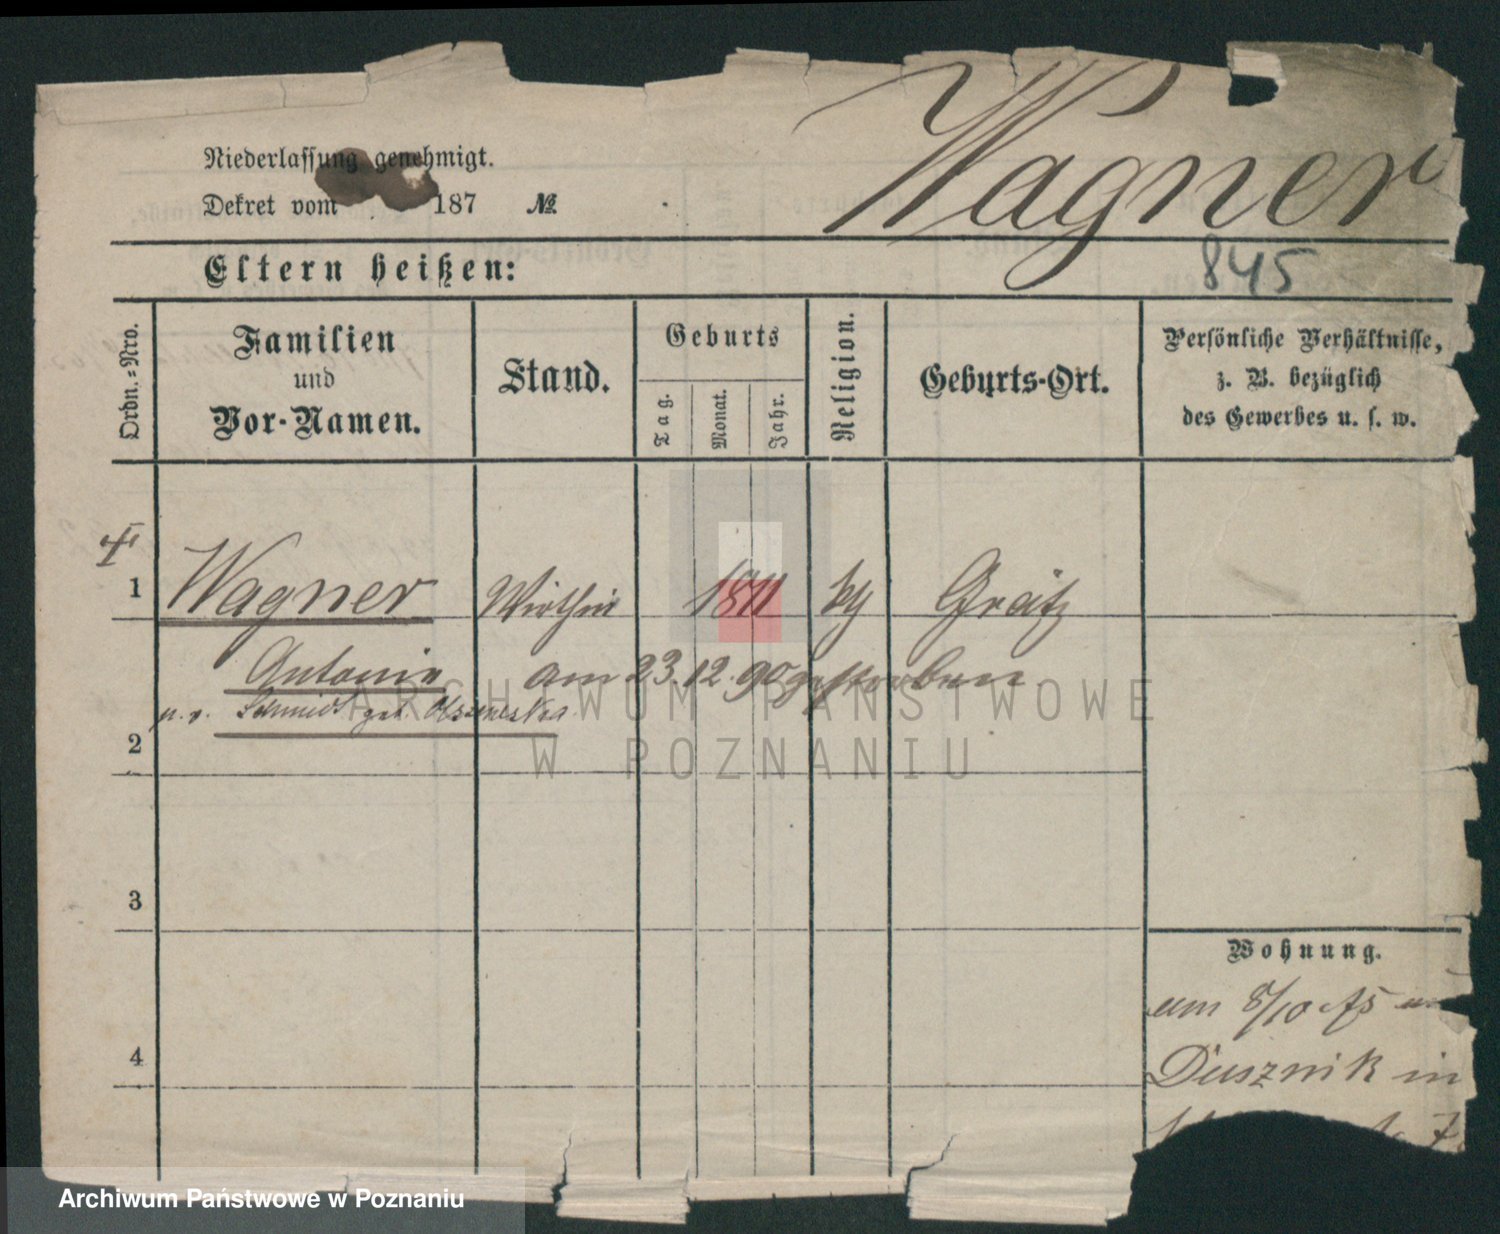 Wagner
Niederlassung genehmigt.
Dekret vom 187 №
845
Eltern heißen:
Ordn.-Nro.
Familien
und
Vor-Namen.
Stand.
Geburts
Tag.
Monat.
Jahr.
Religion.
Geburts-Ort.
Persönliche Verhältnisse,
z. B. bezüglich
des Gewerbes u. s. w.
1 Wagner Wirthin 1811 Grätz
Antonie am 23.12.90 gestorben
Schmidt geb.
2
3
4
Wohnung.
am 8/10 75
Dusznik in
ARCHIWUM PAŃSTWOWE
W POZNANIU
Archiwum Państwowe w Poznaniu